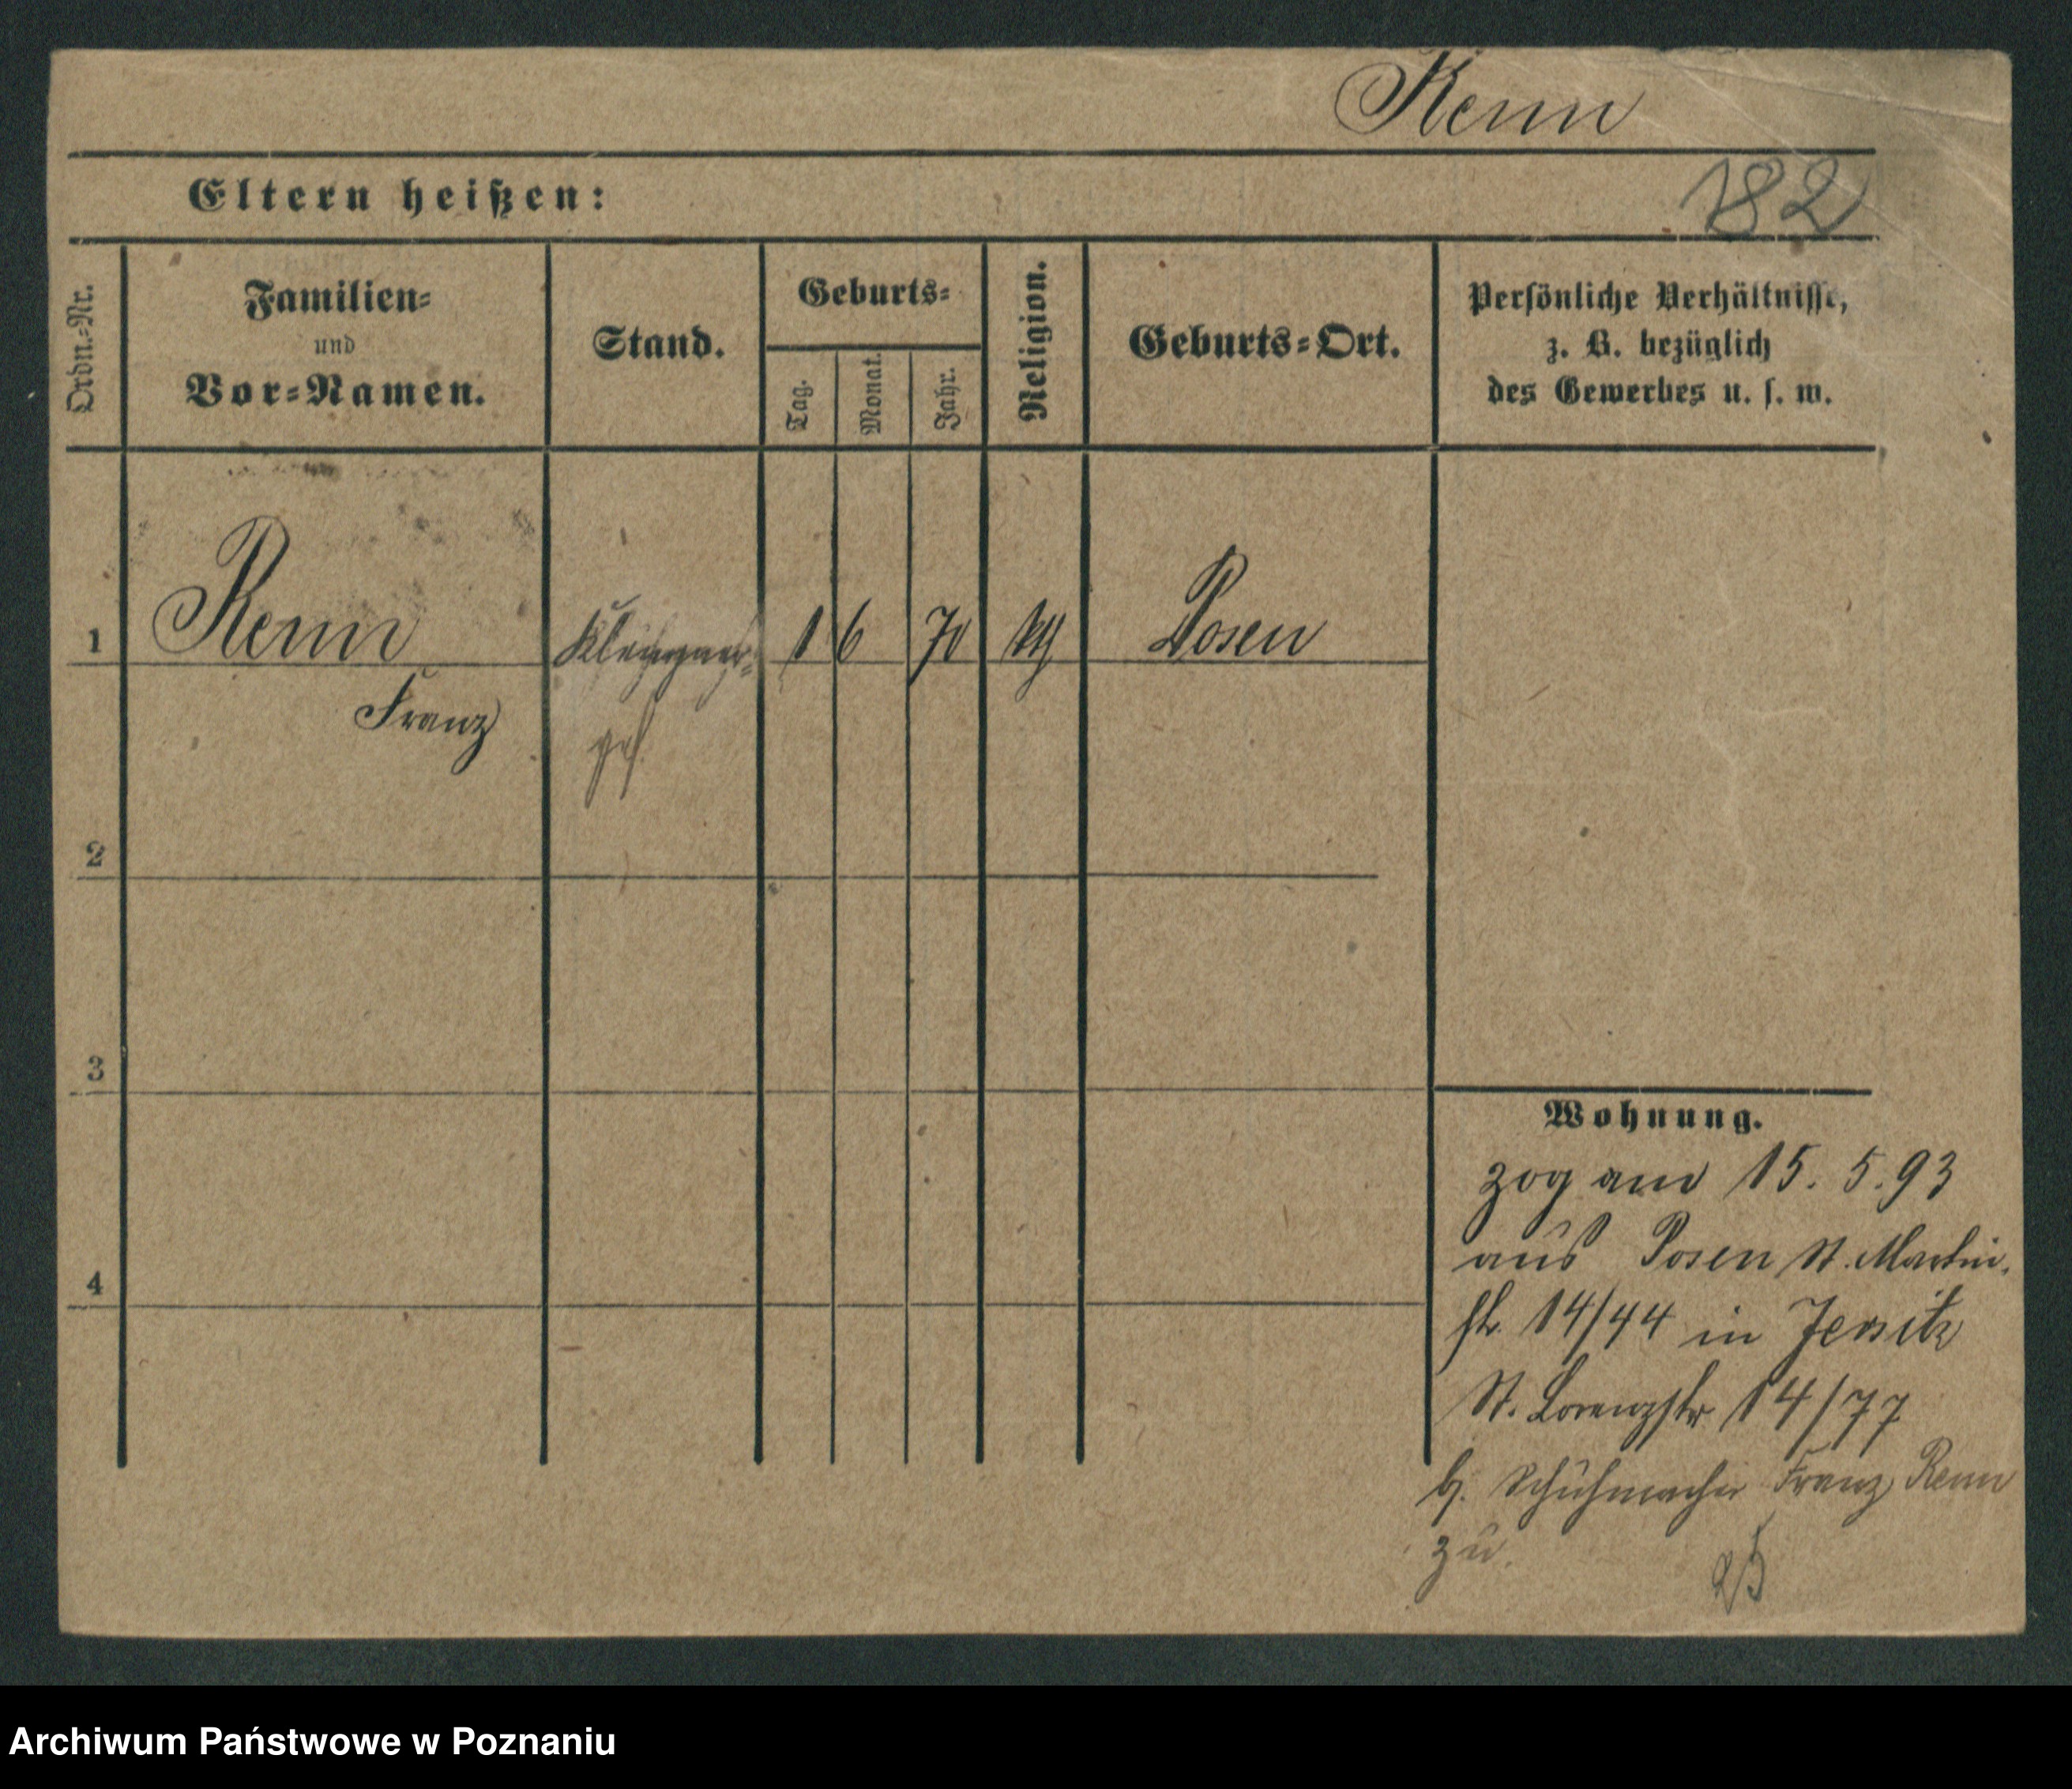 Renn
182
Eltern heißen:
Ordn.-Nr.
Familien-
und
Vor-Namen.
Stand.
Geburts-
Tag.
Monat.
Jahr.
Religion.
Geburts-Ort.
Persönliche Verhältnisse,
z. B. bezüglich
des Gewerbes u. s. w.
1 Renn Klempner- 1 6 70 kth Posen
Franz
ges
2
3
4
Wohnung.
zog am 15. 5. 93
aus Posen St. Martin-
str. 14/44 in Jersitz
St. Lorenzstr 14/77
b. Schuhmacher Franz Renn
zu.
Archiwum Państwowe w Poznaniu